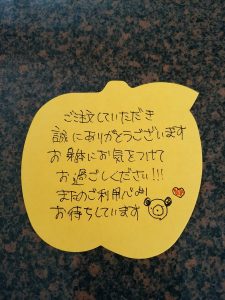 ご注文していただき
誠にありがとうございます
お身体にお気をつけて
お過ごしください!!!
またのご利用心より
お待ちしています